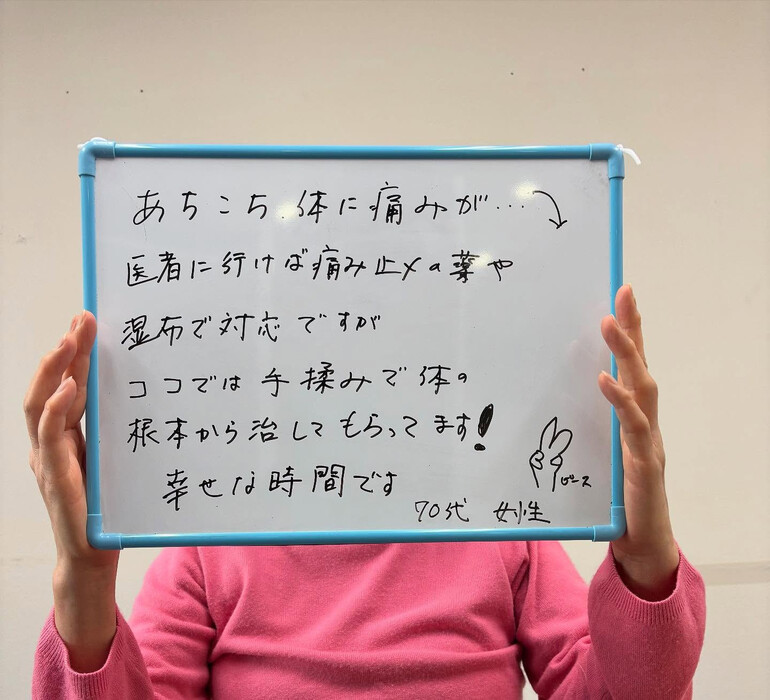 あちこち体に痛みが…
医者に行けば痛み止メの薬や
湿布で対応ですが
ココでは手揉みで体の
根本から治してもらってます!
幸せな時間です
ピース
70代 女性